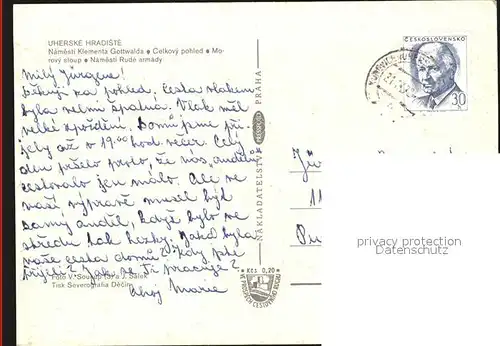 UHERSKÉ HRADIŠTĚ
Náměstí Klementa Gottwalda ● Celkový pohled ● Mo-
rový sloup ● Náměstí Rudé armády
Milý Jürgene!
Děkuji za pohled, cesta vlakem
byla velmi špatná. Vlak měl
velké zpoždění. Domů jsme při-
jely až v 19.00 hod. večer. Celý
den pršelo proto, že nás „andělů"
cestovalo jen málo. Ale ve
vaší výpravě musel být
samý anděl, když bylo ve
středu tak hezky. Jaká byla
vaše cesta domů? Kdy jste
přijeli? Jak se Ti pracuje?
Ahoj Marie
Foto V. Soukup (3) a J. Sálek
Tisk Severografia Děčín
NAKLADATELSTVÍ PRESSFOTO PRAHA
Kčs 0,20
ČESKOSLOVENSKO
30
privacy protection
www.oldthing.de